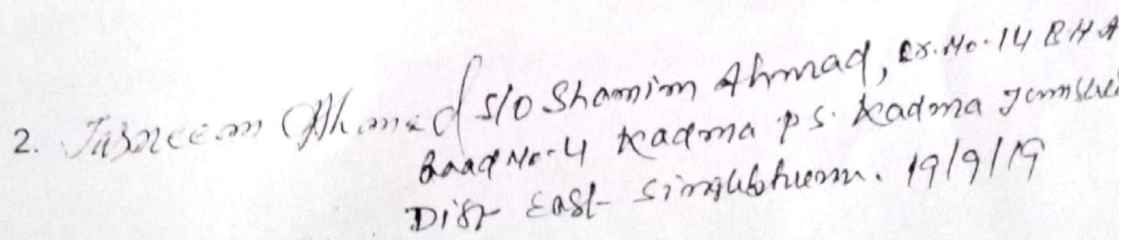 2. Tabreean Ahamed S/O Shamim Ahmad, Qr. No. 14 B.H.A
Road No-4 Kadma P.S. Kadma Jamshe
Dist East-Singhbhum. 19/9/19